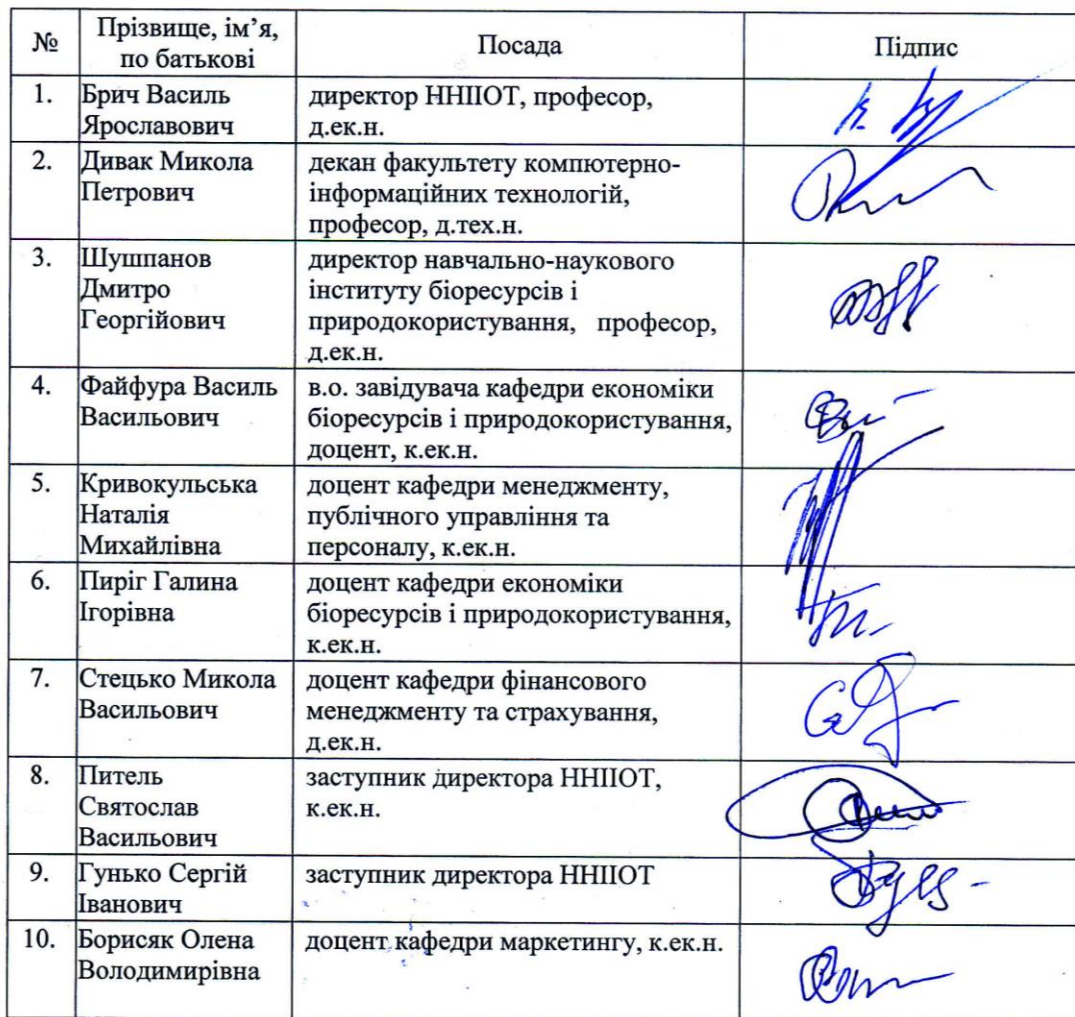 № Прізвище, ім’я, по батькові Посада Підпис
1. Брич Василь Ярославович директор ННІІОТ, професор, д.ек.н.
2. Дивак Микола Петрович декан факультету компютерно-інформаційних технологій, професор, д.тех.н.
3. Шушпанов Дмитро Георгійович директор навчально-наукового інституту біоресурсів і природокористування, професор, д.ек.н.
4. Файфура Василь Васильович в.о. завідувача кафедри економіки біоресурсів і природокористування, доцент, к.ек.н.
5. Кривокульська Наталія Михайлівна доцент кафедри менеджменту, публічного управління та персоналу, к.ек.н.
6. Пиріг Галина Ігорівна доцент кафедри економіки біоресурсів і природокористування, к.ек.н.
7. Стецько Микола Васильович доцент кафедри фінансового менеджменту та страхування, д.ек.н.
8. Питель Святослав Васильович заступник директора ННІІОТ, к.ек.н.
9. Гунько Сергій Іванович заступник директора ННІІОТ
10. Борисяк Олена Володимирівна доцент кафедри маркетингу, к.ек.н.